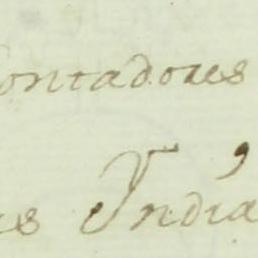 ontadores
s India